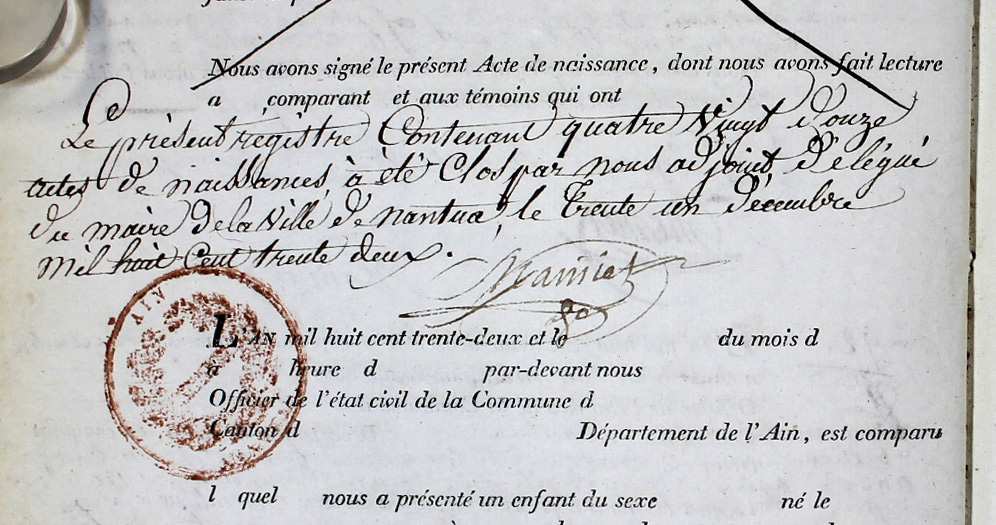 Nous avons signé le présent Acte de naissance, dont nous avons fait lecture
a comparant et aux témoins qui ont
Le présent régistre Contenant quatre Vingt douze
actes de naissances, à été Clos par nous adjoint, délégué
du maire de la Ville de nantua, le trente un décembre
mil huit Cent trente deux.
L'AN mil huit cent trente-deux et le du mois d
a heure d par-devant nous
Officier de l'état civil de la Commune d
AIN
Canton d Département de l'Ain, est comparu
l quel nous a présenté un enfant du sexe né le